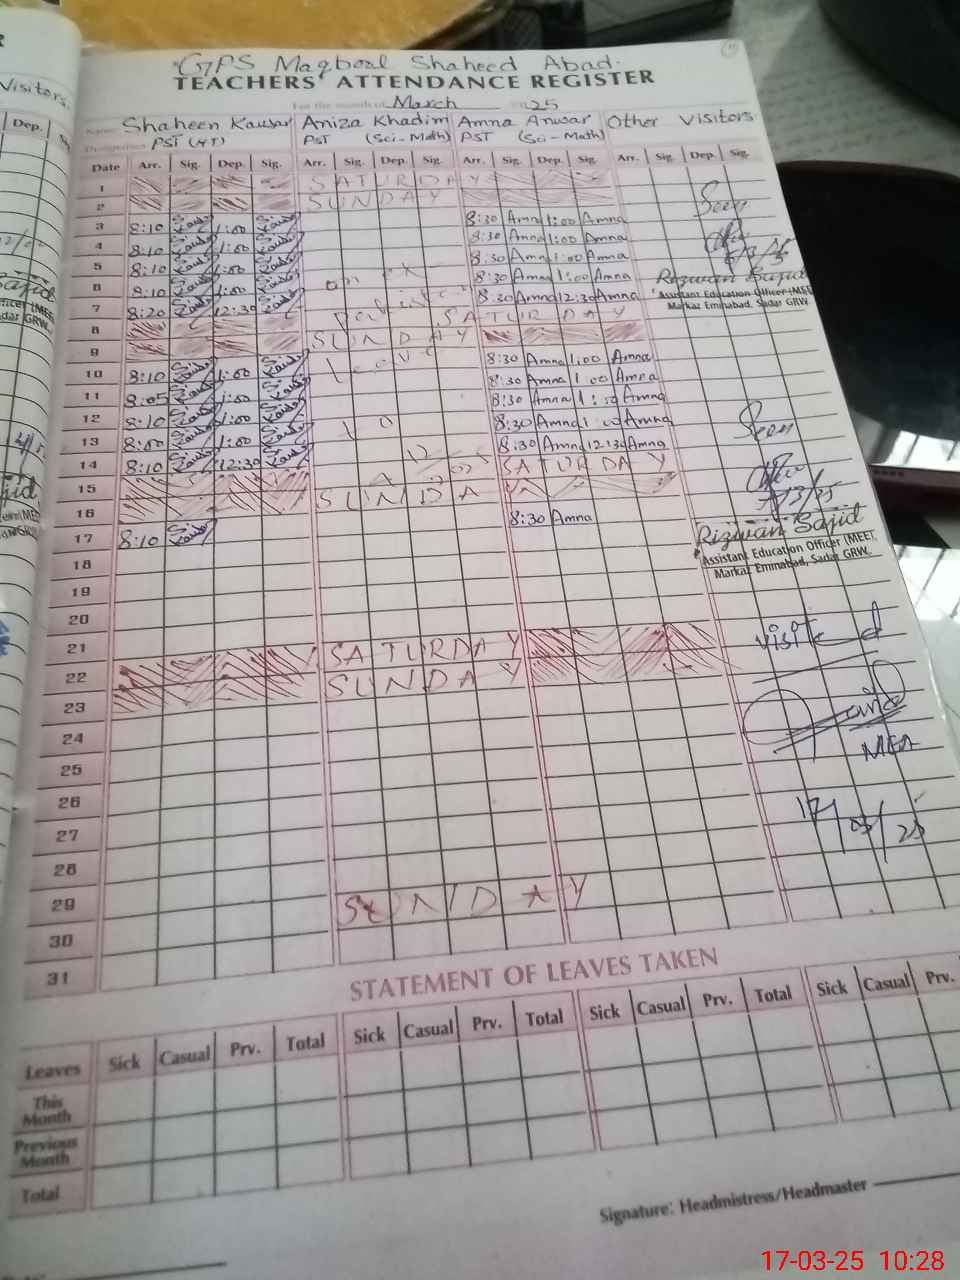 GPS Maqbool Shaheed Abad.
TEACHERS' ATTENDANCE REGISTER
For the month of March 25
Name Shaheen Kausar Aniza Khadim Amna Anwar Other Visitors
Designation PST (HT) PST (Sci-Math) PST (Sci-Math)
Date Arr. Sig. Dep. Sig. Arr. Sig. Dep. Sig. Arr. Sig. Dep. Sig. Arr. Sig. Dep. Sig.
1 SATURDAY
2 SUNDAY
3 8:10 1:00 8:30 Amna 1:00 Amna
4 8:10 1:00 8:30 Amna 1:00 Amna
5 8:10 1:00 8:30 Amna 1:00 Amna
6 8:10 1:00 on 8:30 Amna 1:00 Amna
7 8:20 12:30 8:30 Amna 12:30 Amna
8 SATURDAY
9 SUNDAY
10 8:10 1:00 Leave 8:30 Amna 1:00 Amna
11 8:05 1:00 8:30 Amna 1:00 Amna
12 8:10 1:00 8:30 Amna 1:00 Amna
13 8:00 1:00 8:30 Amna 1:00 Amna
14 8:10 12:30 8:30 Amna 12:30 Amna
15 SATURDAY
16 SUNDAY
17 8:10 8:30 Amna
18
19
20
21
22 SATURDAY
23 SUNDAY
24
25
26
27
28
29
30 SUNDAY
31
Seen
Rizwan Sajid
Assistant Education Officer (MEE
Markaz Eminabad, Sadar GRW.
Seen
Rizwan Sajid
Assistant Education Officer (MEET,
Markaz Eminabad, Sadar GRW.
visited
MEA
17/03/25
STATEMENT OF LEAVES TAKEN
Leaves Sick Casual Prv. Total Sick Casual Prv. Total Sick Casual Prv. Total Sick Casual Prv.
This Month
Previous Month
Total
Signature: Headmistress/Headmaster
Visitors
Dep.
17-03-25 10:28